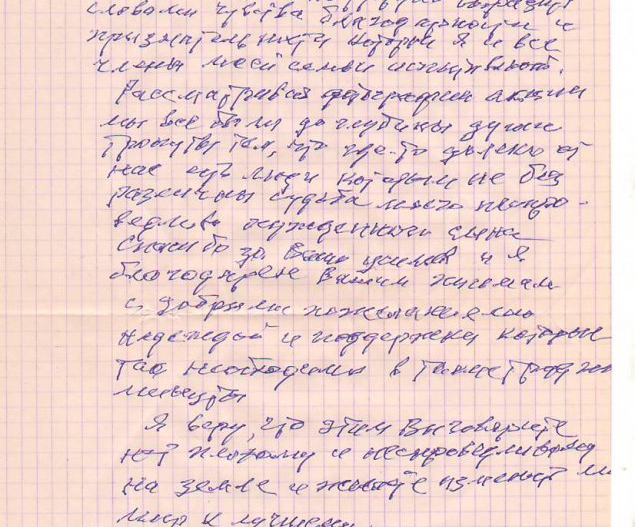 словами чувства благодарности и
признательности которые я и все
члены моей семьи испытывают.
Рассматривая фотографии акции
мы все были до глубины души
тронуты тем, что где-то далеко от
нас есть люди которым не без
различны судьба моего неспро-
ведливо осужденного сына
Спасибо за Ваши усилия и я
благодарен Вашим письмам
с добрыми пожеланиями
надеждой и поддержки которые
так необходимы в такие трудн
минуты
Я верю, что этим Вы говорите
нет плохому и несправедливому
на земле и хотите изменить
мир к лучшему.